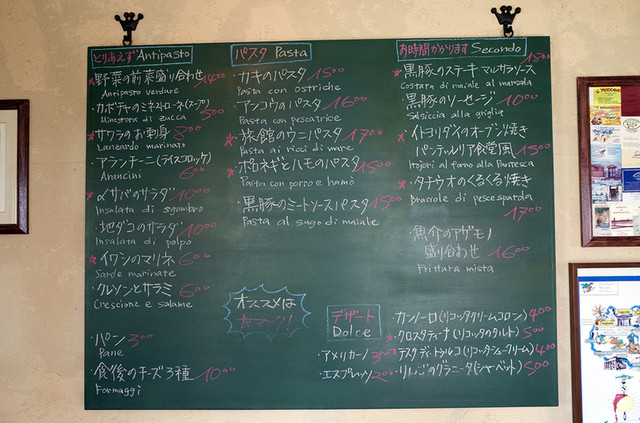 とりあえず Antipasto
★野菜の前菜盛り合わせ 1400
Antipasto verdure
・カボチャのミネストローネ(スープ) 500
Minestrona di zucca
★サワラのお刺身 800
marinato
・アランチーニ(ライスコロッケ)
Arancini 600
★〆サバのサラダ 1000
Insalata di sgombro
・地ダコのサラダ 1000
Insalata di polpo
★イワシのマリネ 600
Sarde marinate
・クレソンとサラミ 600
Crescione e salame
・パン 300
Pane
・食後のチーズ3種 1000
Formaggi
パスタ Pasta
・カキのパスタ 1500
Pasta con ostriche
・アンコウのパスタ 1600
Pasta con pescatrice
★旅館のウニパスタ 1700
Pasta ai ricci di mare
★ポロネギとハモのパスタ 1500
Pasta con porro e hamo
・黒豚のミートソースパスタ 1500
Pasta al sugo di maiale
オススメは
★マーク!
お時間かかります Secondo
★黒豚のステーキ マルサラソース 1800
Costata di maiale al marsala
・黒豚のソーセージ 1000
Salsiccia alla griglia
★イトヨリダイのオーブン焼き
パンテッレリア食堂風 1500
Itojori al forno alla Pantesca
★タチウオのくるくる焼き
Braciole di pesce sparda
1700
・魚介のアゲモノ
盛り合わせ 1600
Frittura mista
デザート
Dolce
・カンノーロ(リコッタクリームコロン) 400
★クロスタティーナ(リコッタのタルト) 500
・アメリカーノ 300
★テスタディトゥルコ(リコッタシュークリーム) 400
・エスプレッソ 200
・りんごのグラニータ(シャーベット) 500